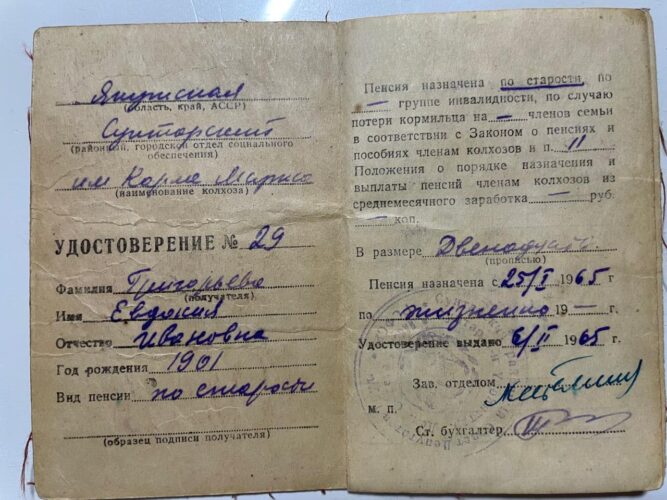 Якутская
(область, край, АССР)
Сунтарский
(районный, городской отдел социального
обеспечения)
им Карла Маркса
(наименование колхоза)
УДОСТОВЕРЕНИЕ № 29
Фамилия Григорьева
(получателя)
Имя Евдокия
Отчество Ивановна
Год рождения 1901
Вид пенсии по старости
(образец подписи получателя)
Пенсия назначена по старости, по
— группе инвалидности, по случаю
потери кормильца на — членов семьи
в соответствии с Законом о пенсиях и
пособиях членам колхозов в п. 11
Положения о порядке назначения и
выплаты пенсий членам колхозов из
среднемесячного заработка — руб.
— коп.
В размере Двенадцать
(прописью)
Пенсия назначена с 25/I 1965 г
по жизненно 19 — г.
Удостоверение выдано 6/II 1965 г.
Зав. отделом
М. П.
Ст. бухгалтер